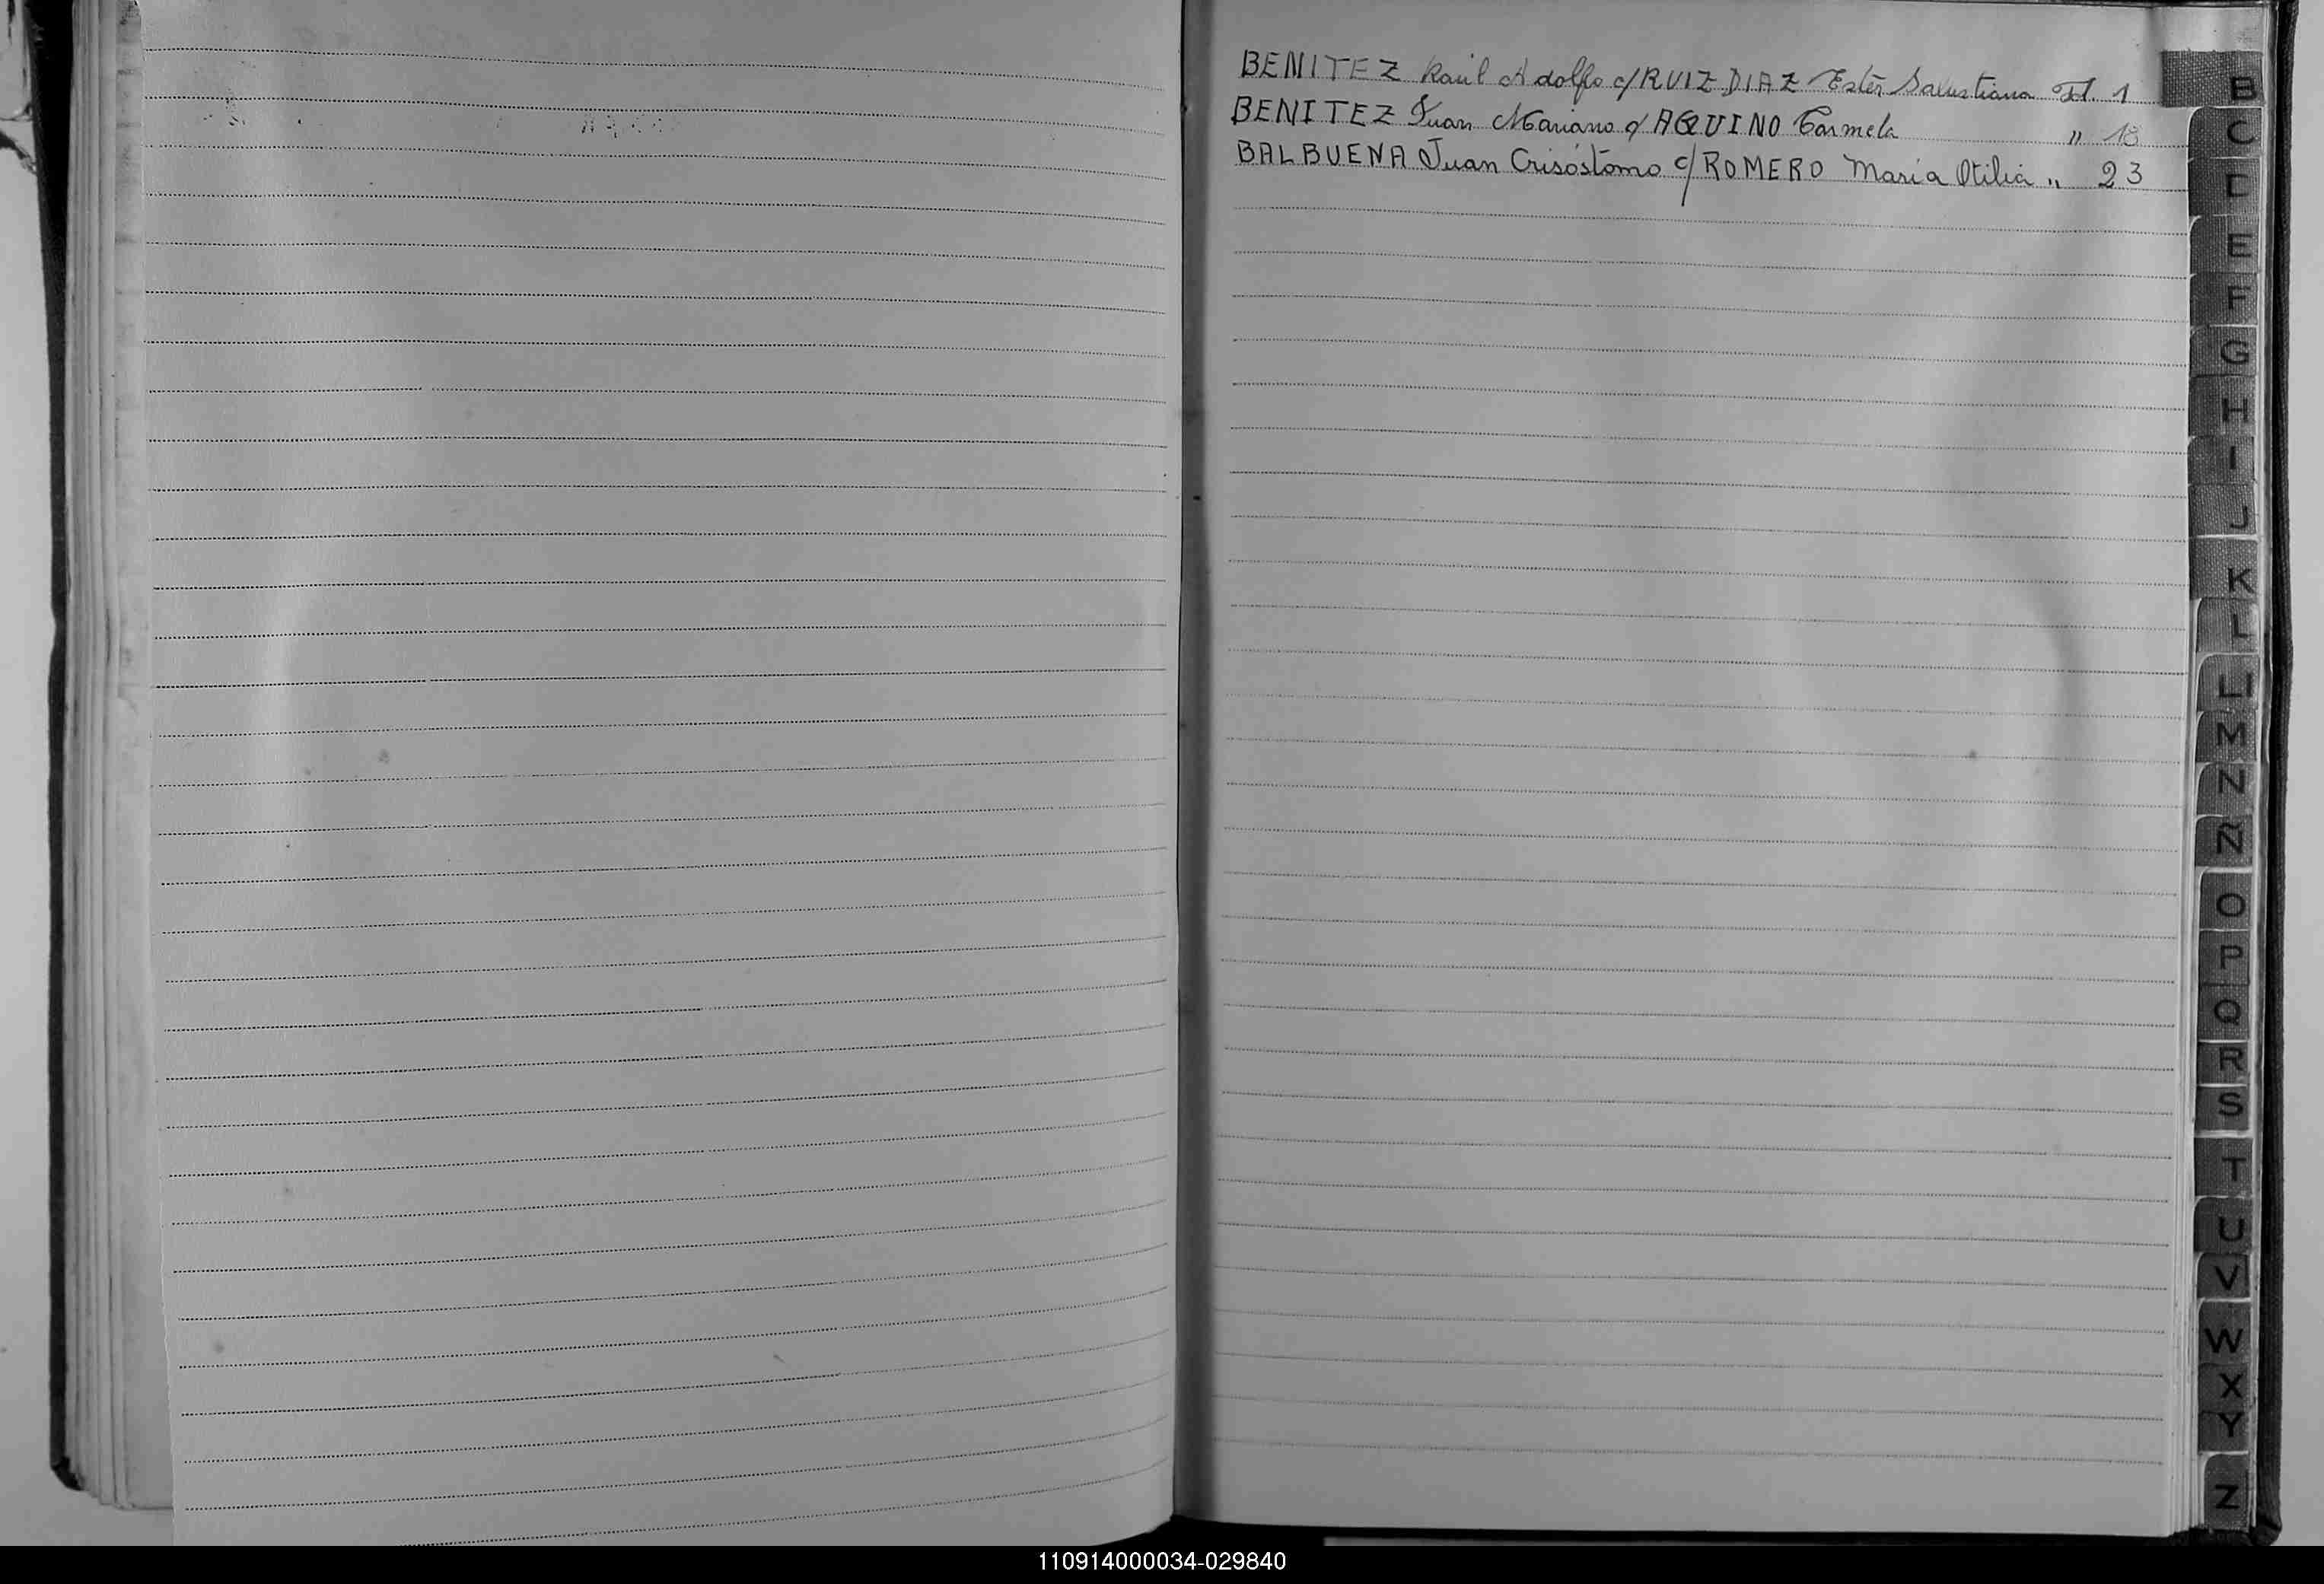 BENITEZ Raúl Adolfo c/ RUIZ DIAZ Estér Salustiana Fol. 1
BENITEZ Juan Mariano c/ AQUINO Carmela " 18
BALBUENA Juan Crisóstomo c/ ROMERO María Otilia " 23
B
C
D
E
F
G
H
I
J
K
L
LL
M
N
Ñ
O
P
Q
R
S
T
U
V
W
X
Y
Z
110914000034-029840